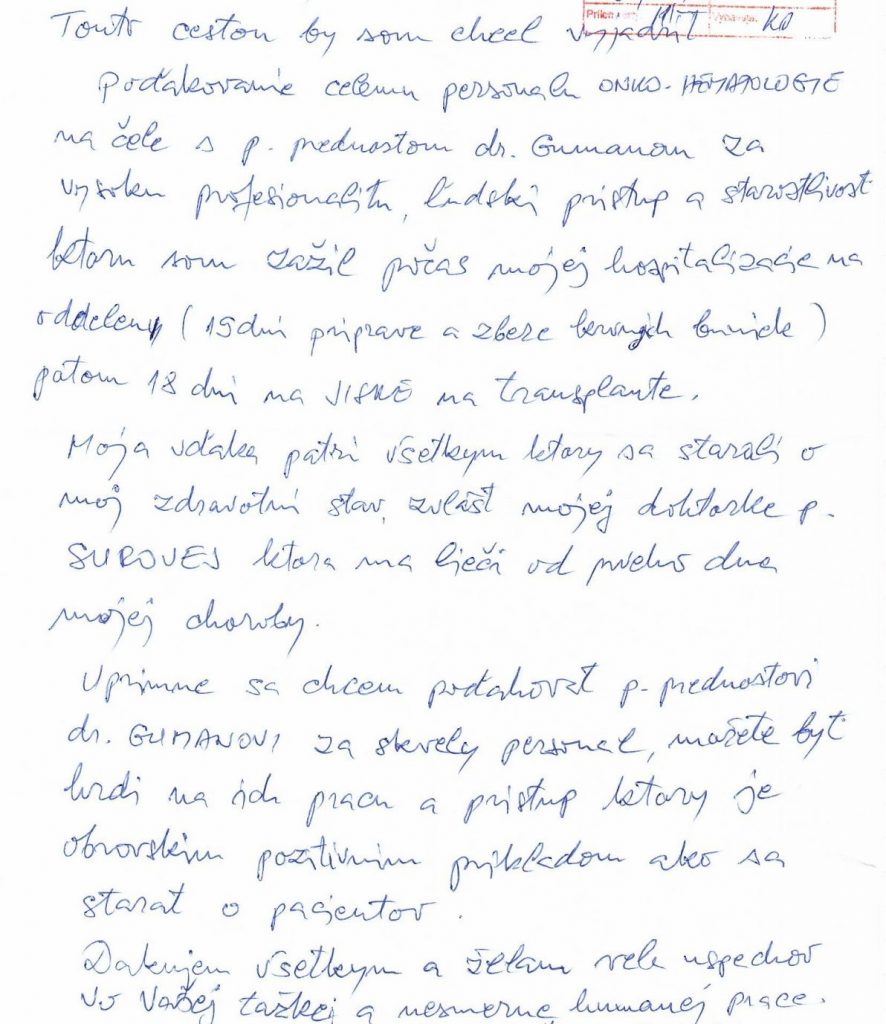 Touto cestou by som chcel vyjadriť
Poďakovanie celemu personalu ONKO-HEMATOLOGIE
na čele s p. prednostom dr. Gumanom za
vysoku profesionalitu, ľudski pristup a starostlivosť
ktoru som zažil počas mojej hospitalizacie na
oddeleny (15 dni priprave a zbere krvných buniek)
patom 18 dni na JISKE na transplante.
Moja vďaka patri všetkym ktory sa starali o
moj zdravotni stav, zvlášť mojej doktorke p.
SUROVEJ ktora ma lieči od prveho dna
mojej choroby.
Uprimne sa chcem poďakovať p. prednostovi
dr. GUMANOVI za skvely personal, možete byť
hrdi na ich pracu a pristup ktory je
obrovskim pozitivnim prikladom ako sa
starat o pacientov.
Dakujem všetkym a želam vela uspechov
vo Vašej ťažkej a nesmerne humanej prace.